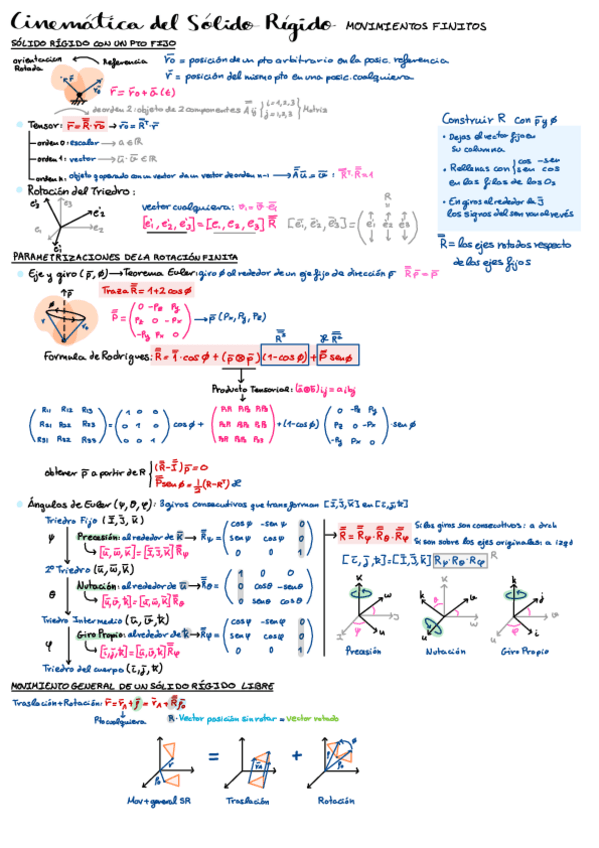 Cinemática del Sólido Rígido. MOVIMIENTOS FINITOS
SÓLIDO RÍGIDO CON UN PTO FIJO
orientacion Rotada
Referencia
r̄o = posición de un pto arbitrario en la posic. referencia
r̄ = posición del mismo pto en una posic. cualquiera
r̄ = r̄o + ā (t)
de orden 2: objeto de 2 componentes Aij { i=1,2,3 j=1,2,3 } Matriz
Tensor: r̄ = R̿·r̄o → r̄o = Rᵀ·r̄
orden 0: escalar → a ∈ R
orden 1: vector → ū·v̄ ∈ R
orden n: objeto q operado con un vector da un vector de orden n-1 → A̿ ū = v̄ : R̿ᵀ·R̿ = 1
Construir R con p̄ y ø
• Dejas el vector fijo en su columna
• Rellenas con { cos -sen sen cos en las filas de los 0s
• En giros alrededor de J los signos del sen van al revés
R̿ = los ejes rotados respecto de los ejes fijos
Rotación del Triedro:
vector cualquiera: v₁ = v̄·ē₁
[ē₁', ē₂', ē₃'] = [ē₁, ē₂, ē₃] R̿
PARAMETRIZACIONES DE LA ROTACIÓN FINITA
Eje y giro (p̄, ø) → Teorema Euler: giro ø alrededor de un eje fijo da dirección p̄ R̿ p̄ = p̄
Traza R̿ = 1+2 cos ø
P̿ = ( 0 -Pz Py Pz 0 -Px -Py Px 0 ) → p̄ (Px, Py, Pz)
Formula de Rodrigues: R̿ = 1̿·cos ø + (p̄⊗p̄)(1-cos ø) + P̿ sen ø
Producto Tensorial: (ā⊗b̄)ij = ai bj
( R11 R12 R13 R21 R22 R23 R31 R32 R33 ) = ( 1 0 0 0 1 0 0 0 1 ) cos ø +
+ (1-cos ø)
( 0 -Pz Py Pz 0 -Px -Py Px 0 ) · sen ø
obtener p̄ a partir de R { (R̿-I̿) p̄ = 0
P̿ sen ø = ½ (R-Rᵀ)
Ángulos de Euler (ψ, θ, φ): 3 giros consecutivos que transforman [Ī, J̄, K̄] en [ī, j̄, k̄]
Triedro Fijo (Ī, J̄, K̄)
ψ Precesión: alrededor de K̄ → R̿ψ = ( cosψ -senψ 0 senψ cosψ 0 0 0 1 )
[ū, w̄, K̄] = [Ī, J̄, K̄] R̿ψ
2º Triedro (ū, w̄, K̄)
θ Nutación: alrededor de ū → R̿θ = ( 1 0 0 0 cosθ -senθ 0 senθ cosθ )
[ū, v̄, k̄] = [ū, w̄, K̄] R̿θ
Triedro Intermedio (ū, v̄, k̄)
φ Giro Propio: alrededor de k̄ → R̿φ = ( cosφ -senφ 0 senφ cosφ 0 0 0 1 )
[ī, j̄, k̄] = [ū, v̄, k̄] R̿φ
Triedro del cuerpo (ī, j̄, k̄)
R̿ = R̿ψ · R̿θ · R̿φ
Si los giros son consecutivos: a drch
Si son sobre los ejes originales: a izqd
[ī, j̄, k̄] = [Ī, J̄, K̄] Rψ·Rθ·Rφ R
Precesión
Nutación
Giro Propio
MOVIMIENTO GENERAL DE UN SÓLIDO RÍGIDO LIBRE
Traslación + Rotación: r̄ = r̄A + ρ̄ = r̄A + R̿ ρ̄o
Pto cualquiera
R · Vector posición sin rotar = vector rotado
= +
Mov general SR
Traslación
Rotación